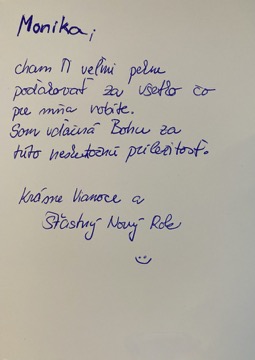 Monika,
chcem Ti veľmi pekne
poďakovať za všetko čo
pre mňa robíte.
Som vďačná Bohu za
túto neskutočnú príležitosť.
Krásne Vianoce a
Šťastný Nový Rok